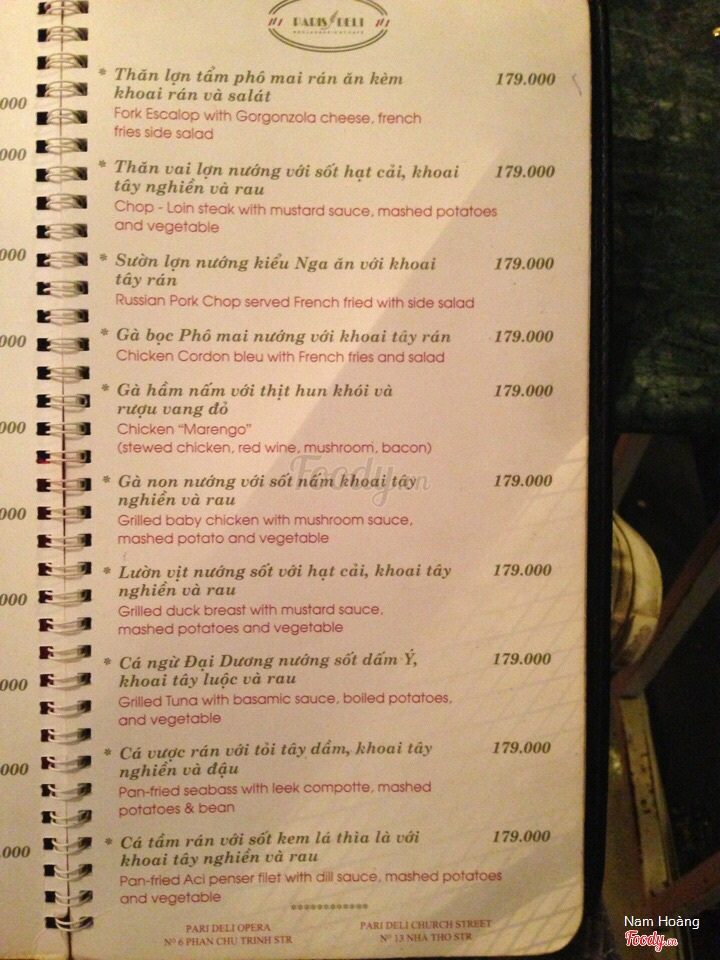 PARIS DELI
* Thăn lợn tẩm phô mai rán ăn kèm 179.000
khoai rán và salát
Fork Escalop with Gorgonzola cheese, french
fries side salad
* Thăn vai lợn nướng với sốt hạt cải, khoai 179.000
tây nghiền và rau
Chop - Loin steak with mustard sauce, mashed potatoes
and vegetable
* Sườn lợn nướng kiểu Nga ăn với khoai 179.000
tây rán
Russian Pork Chop served French fried with side salad
* Gà bọc Phô mai nướng với khoai tây rán 179.000
Chicken Cordon bleu with French fries and salad
* Gà hầm nấm với thịt hun khói và 179.000
rượu vang đỏ
Chicken “Marengo”
(stewed chicken, red wine, mushroom, bacon)
* Gà non nướng với sốt nấm khoai tây 179.000
nghiền và rau
Grilled baby chicken with mushroom sauce,
mashed potato and vegetable
* Lườn vịt nướng sốt với hạt cải, khoai tây 179.000
nghiền và rau
Grilled duck breast with mustard sauce,
mashed potatoes and vegetable
* Cá ngừ Đại Dương nướng sốt dấm Ý, 179.000
khoai tây luộc và rau
Grilled Tuna with basamic sauce, boiled potatoes,
and vegetable
* Cá vược rán với tỏi tây dầm, khoai tây 179.000
nghiền và đậu
Pan-fried seabass with leek compotte, mashed
potatoes & bean
* Cá tầm rán với sốt kem lá thìa là với 179.000
khoai tây nghiền và rau
Pan-fried Aci penser filet with dill sauce, mashed potatoes
and vegetable
PARI DELI OPERA
Nº 6 PHAN CHU TRINH STR
PARI DELI CHURCH STREET
Nº 13 NHA THO STR
000
000
000
000
000
000
000
000
000
.000
Foody.vn
Nam Hoàng
Foody.vn